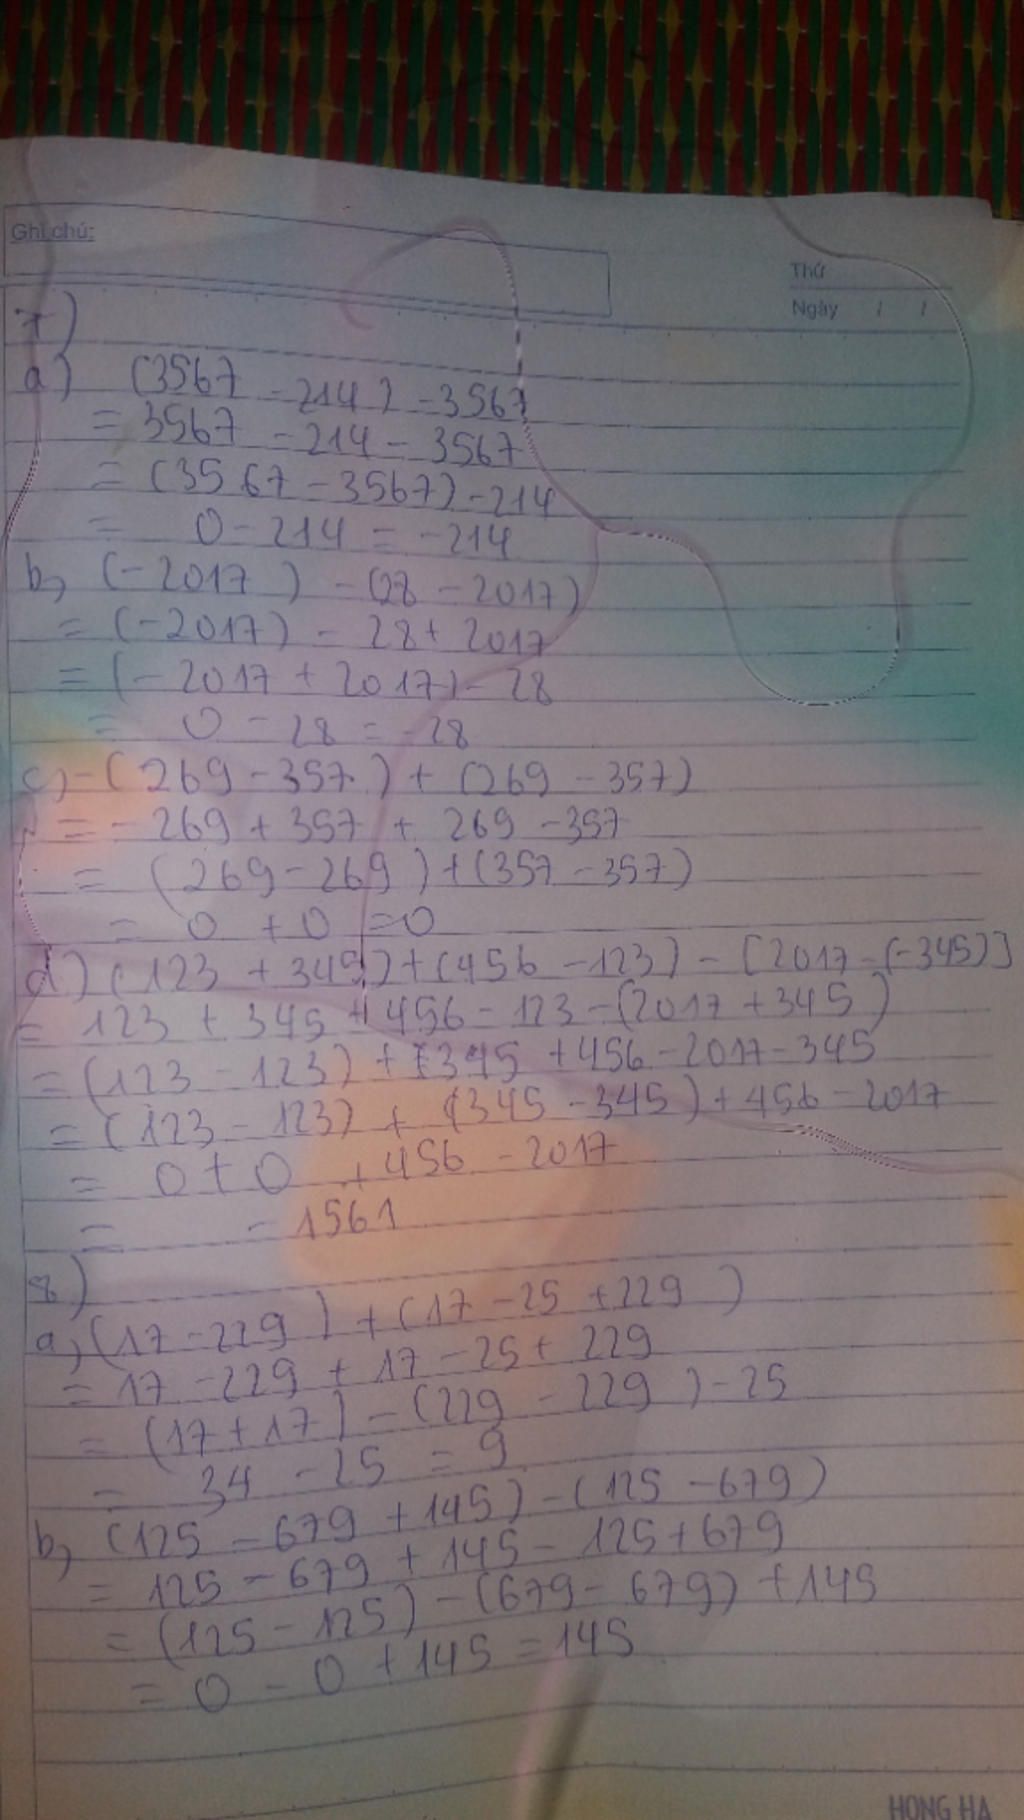 Ghi chú:
Thứ
Ngày / /
7)
a) (3567 - 214) - 3567
= 3567 - 214 - 3567
= (3567 - 3567) - 214
= 0 - 214 = -214
b, (-2017) - (28 - 2017)
= (-2017) - 28 + 2017
= (-2017 + 2017) - 28
= 0 - 28 = -28
c, -(269 - 357) + (269 - 357)
= -269 + 357 + 269 - 357
= (269 - 269) + (357 - 357)
= 0 + 0 = 0
d) (123 + 345) + (456 - 123) - [2017 - (-345)]
= 123 + 345 + 456 - 123 - (2017 + 345)
= (123 - 123) + (345 + 456 - 2017 - 345
= (123 - 123) + (345 - 345) + 456 - 2017
= 0 + 0 + 456 - 2017
= - 1561
8)
a, (17 - 229) + (17 - 25 + 229)
= 17 - 229 + 17 - 25 + 229
= (17 + 17) - (229 - 229) - 25
= 34 - 25 = 9
b, (125 - 679 + 145) - (125 - 679)
= 125 - 679 + 145 - 125 + 679
= (125 - 125) - (679 - 679) + 145
= 0 - 0 + 145 = 145
HONG HA